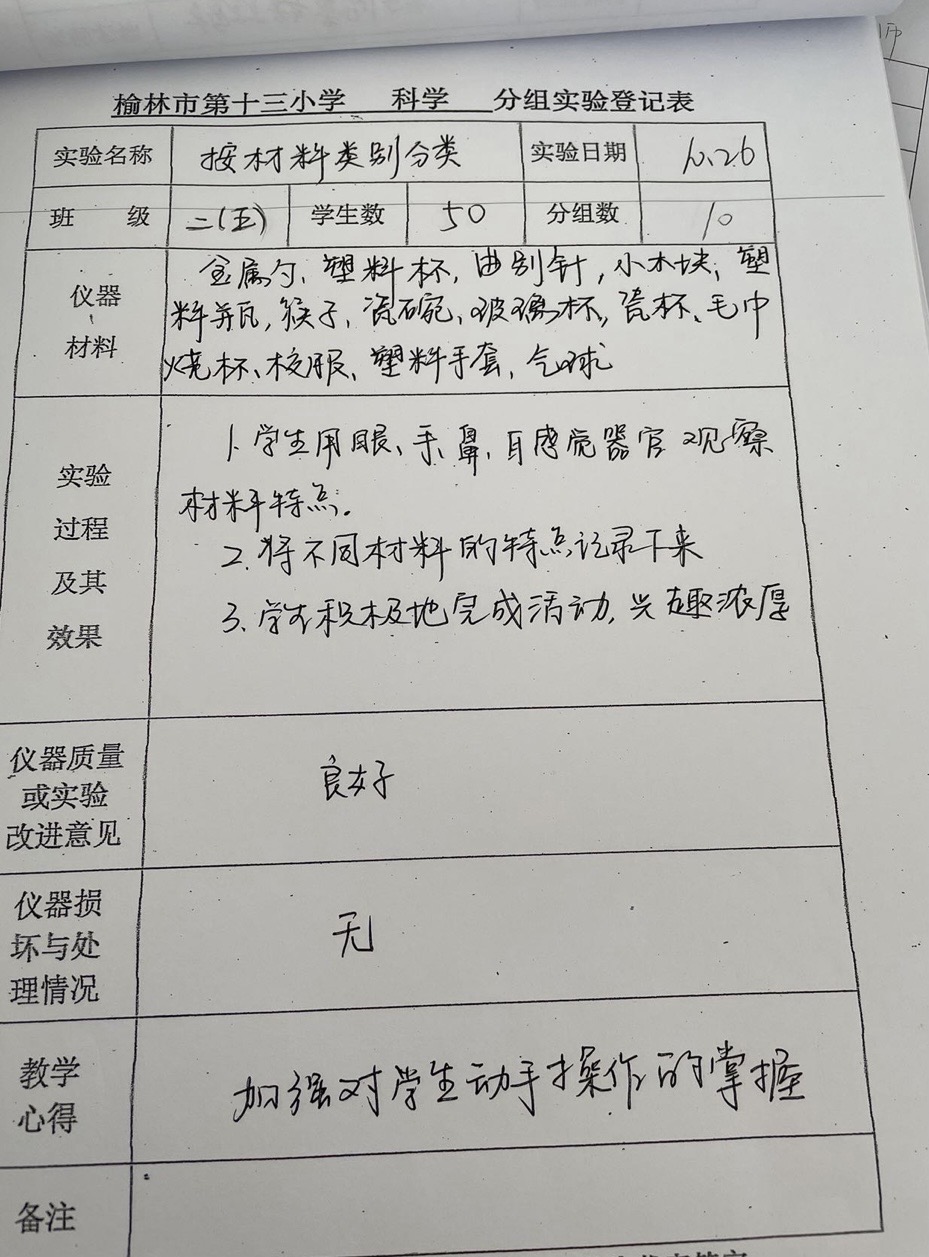 榆林市第十三小学 科学 分组实验登记表
实验名称 按材料类别分类 实验日期 10.26
班 级 二(五) 学生数 50 分组数 10
仪器、材料
金属勺、塑料杯,曲别针,小木块,塑
料瓶瓦,筷子、瓷碗、玻璃杯,瓷杯、毛巾
烧杯、校服、塑料手套、气球
实验
过程
及其
效果
1.学生用眼、手、鼻、耳感觉器官观察
材料特点.
2.将不同材料的特点记录下来
3.学生积极地完成活动,兴趣浓厚
仪器质量
或实验
改进意见
良好
仪器损
坏与处
理情况
无
教学
心得
加强对学生动手操作的掌握
备注